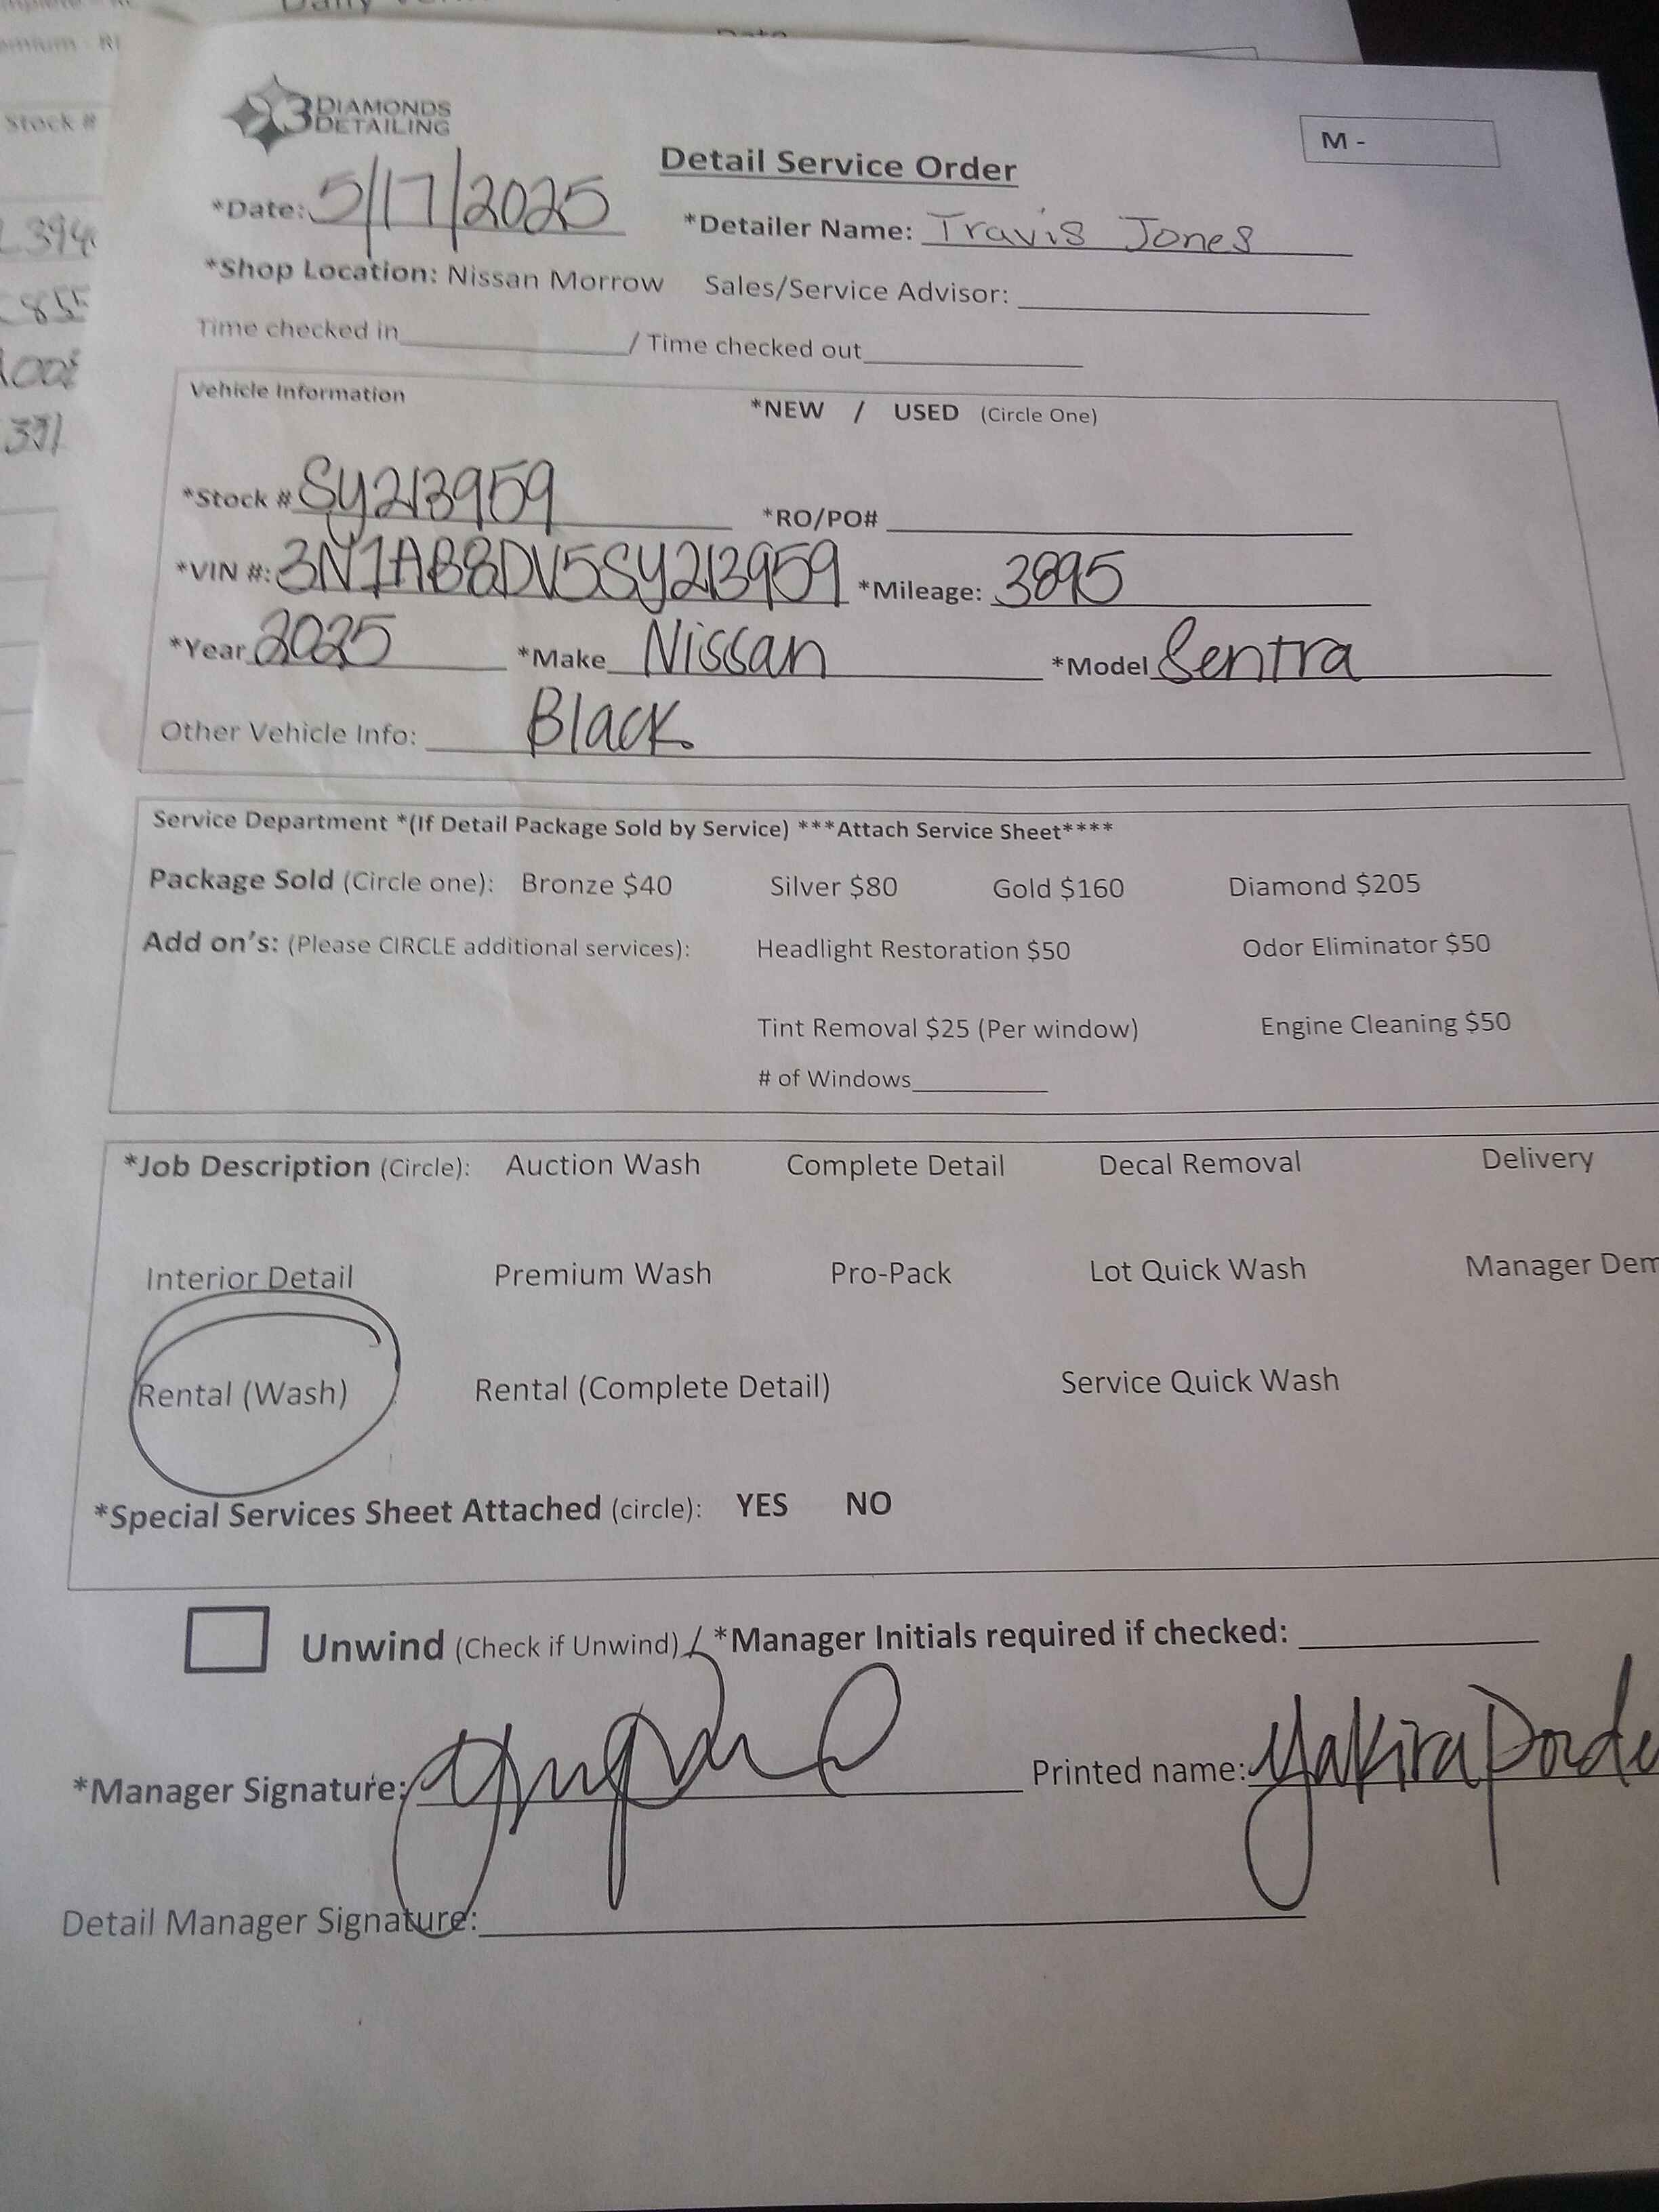 Stock #
3 DIAMONDS
DETAILING
M -
Detail Service Order
*Date: 5/17/2025 *Detailer Name: Travis Jones
*Shop Location: Nissan Morrow Sales/Service Advisor:
Time checked in / Time checked out
Vehicle Information
*NEW / USED (Circle One)
*Stock # SY213959 *RO/PO#
*VIN #: 3N1AB8DV5SY213959 *Mileage: 3895
*Year 2025 *Make Nissan *Model Sentra
Other Vehicle Info: Black
Service Department *(If Detail Package Sold by Service) ***Attach Service Sheet****
Package Sold (Circle one): Bronze $40 Silver $80 Gold $160 Diamond $205
Add on's: (Please CIRCLE additional services): Headlight Restoration $50 Odor Eliminator $50
Tint Removal $25 (Per window) Engine Cleaning $50
# of Windows
*Job Description (Circle): Auction Wash Complete Detail Decal Removal Delivery
Interior Detail Premium Wash Pro-Pack Lot Quick Wash Manager Dem
Rental (Wash) Rental (Complete Detail) Service Quick Wash
*Special Services Sheet Attached (circle): YES NO
Unwind (Check if Unwind) / *Manager Initials required if checked:
*Manager Signature: Printed name: Yakira
Detail Manager Signature: